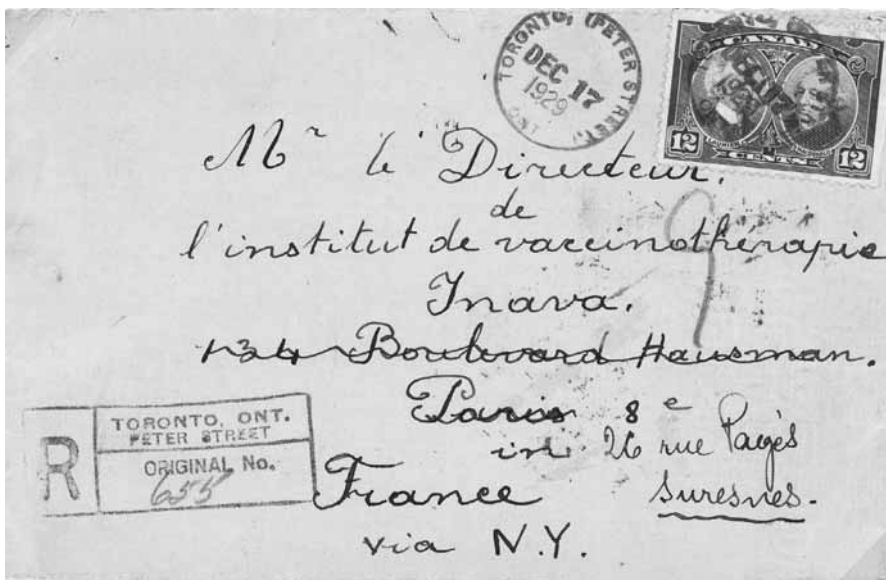 TORONTO, (PETER STREET,
DEC 17
1929
ONT.
CANADA
12 12
CENTS
Mr le Directeur.
de
l'institut de vaccinotherapie
Inava.
134 Boulevard Hausman.
Paris 8e
in 26 rue Pagès
France Suresnes.
via N.Y.
R
TORONTO, ONT.
PETER STREET
ORIGINAL No.
655
9